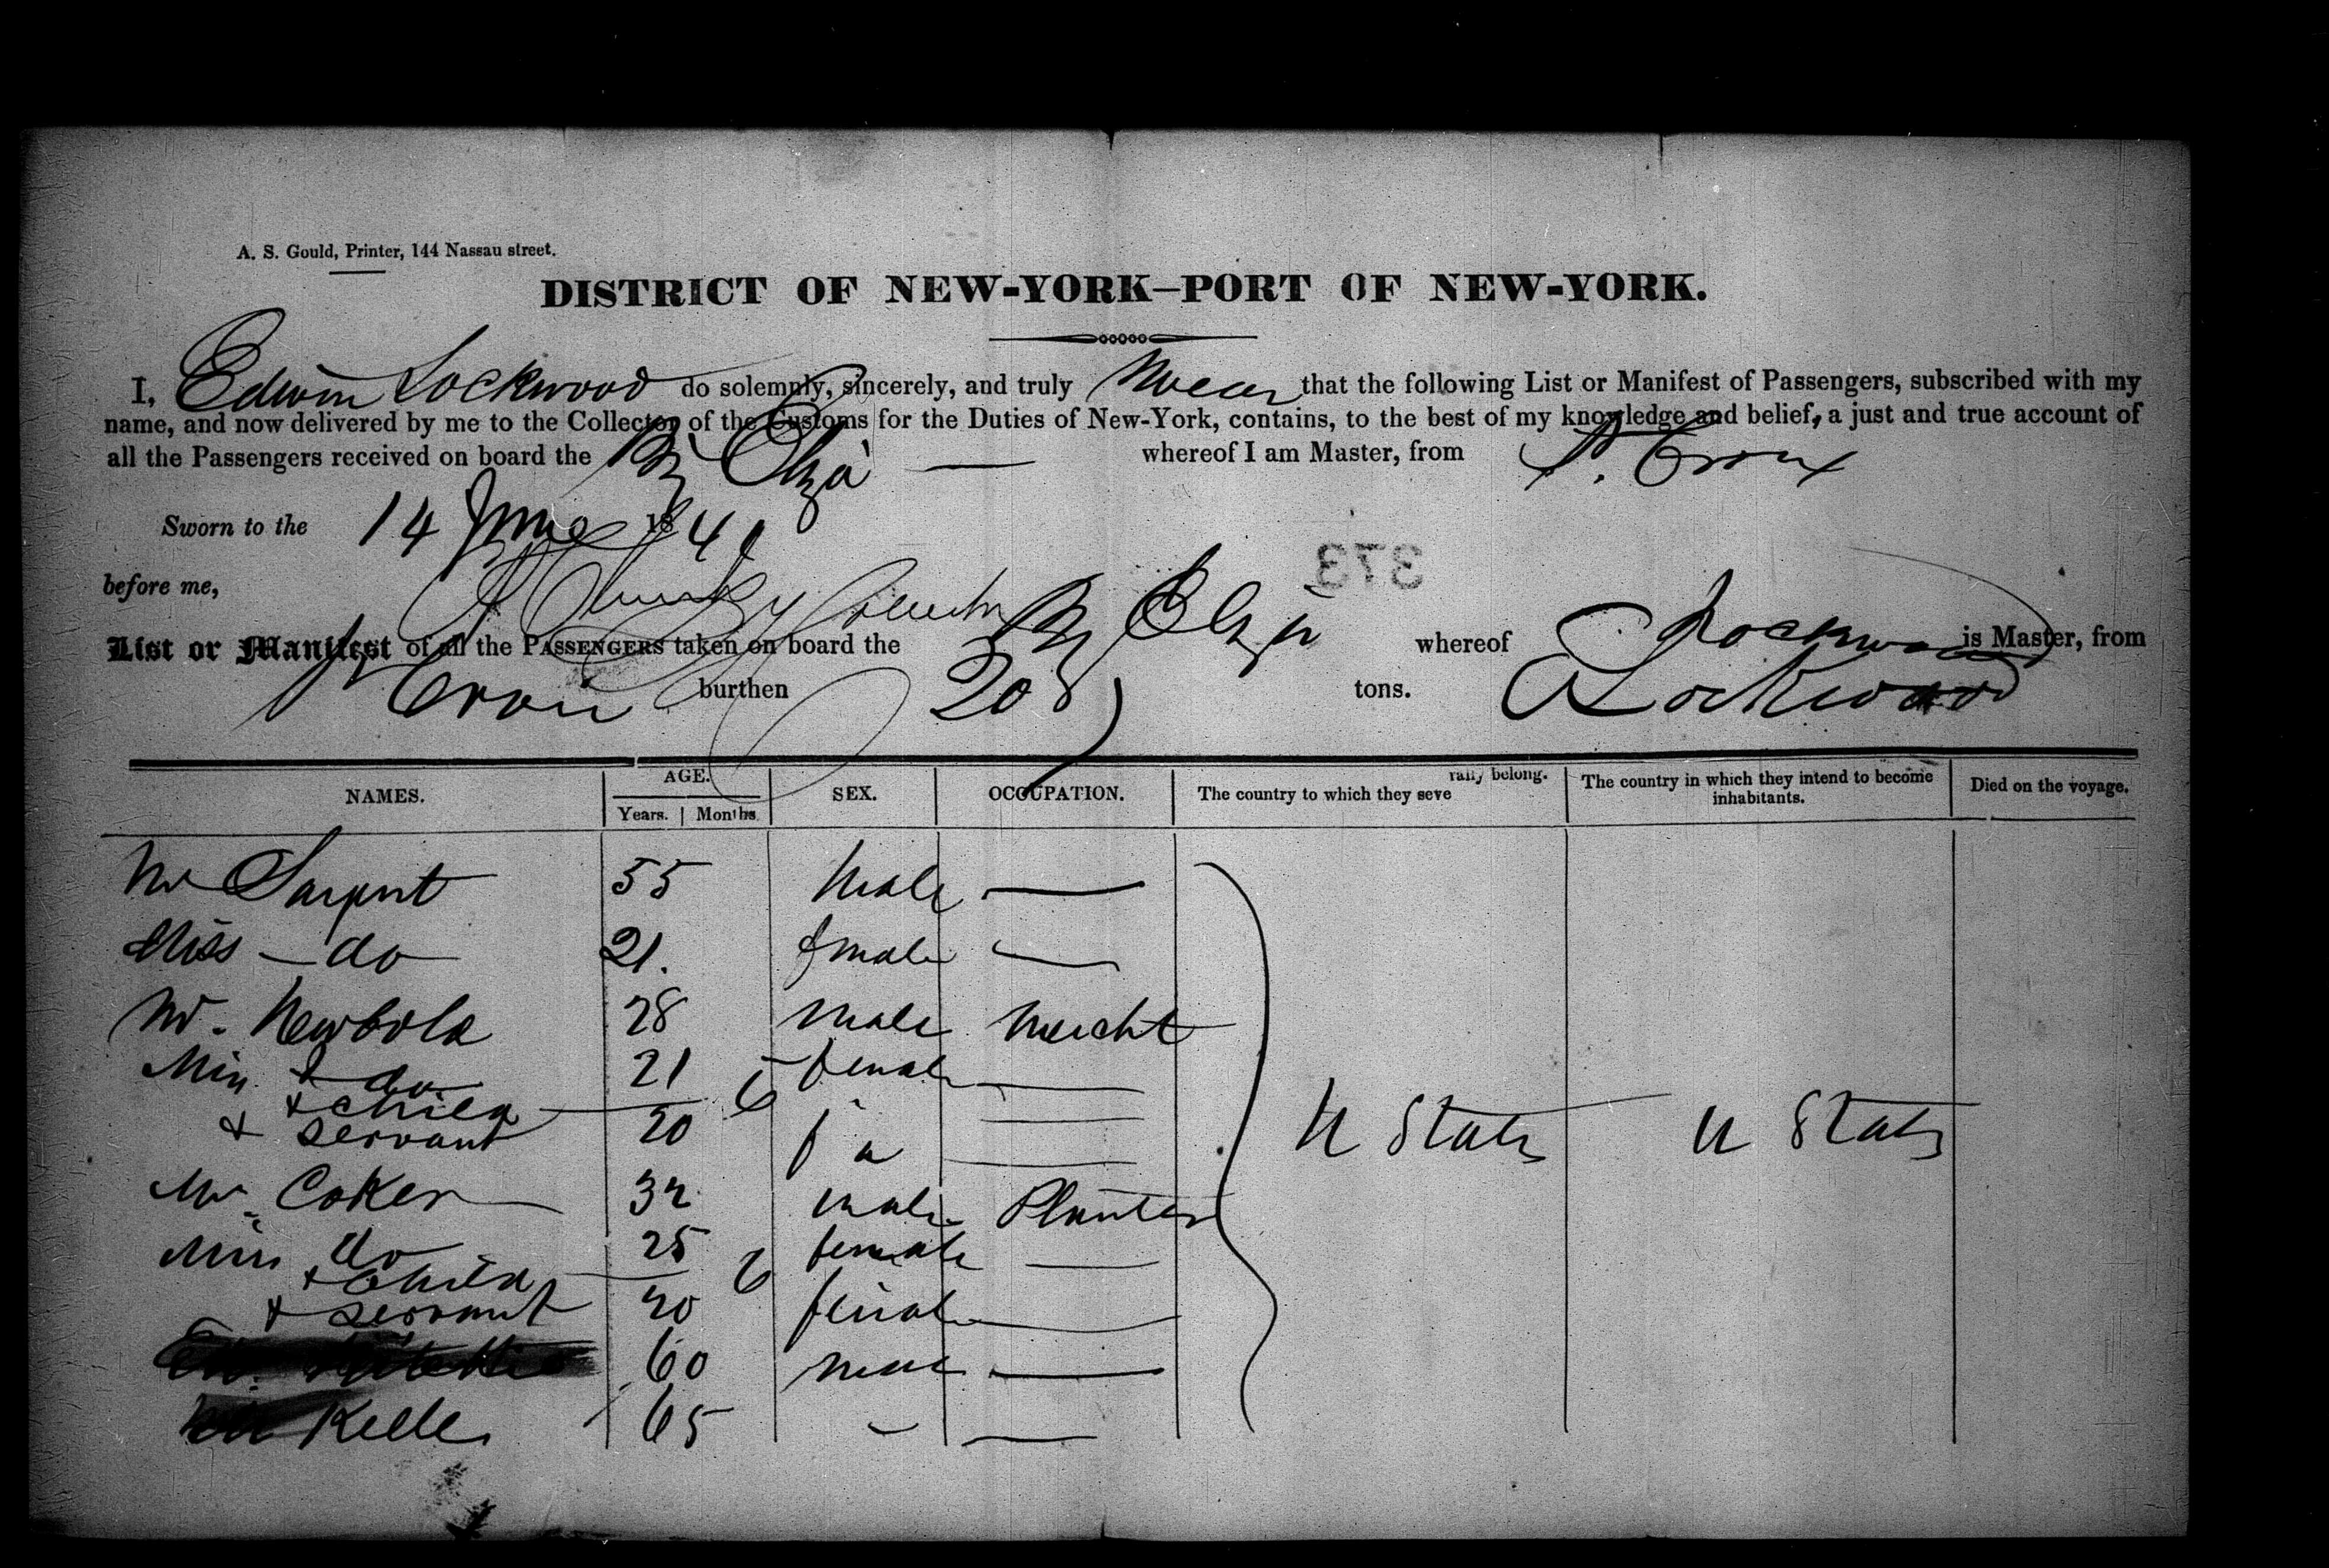 A. S. Gould, Printer, 144 Nassau street.
DISTRICT OF NEW-YORK—PORT OF NEW-YORK.
I, Edwin Lockwood do solemnly, sincerely, and truly swear that the following List or Manifest of Passengers, subscribed with my
name, and now delivered by me to the Collector of the Customs for the Duties of New-York, contains, to the best of my knowledge and belief, a just and true account of
all the Passengers received on board the Bg Eliza — whereof I am Master, from St. Croix
Sworn to the 14 June 1841
373
before me,
List or Manifest of all the PASSENGERS taken on board the Bg Eliza whereof Lockwood is Master, from
St Croix burthen 208 tons. E Lockwood
NAMES. AGE. Years. Months. SEX. OCCUPATION. The country to which they severally belong. The country in which they intend to become inhabitants. Died on the voyage.
Mr Sargent 55 Male —
Miss — do 21. female —
Mr. Newbold 28 Male Mercht
Mrs. do 21 female —
& child 6 —
& servant 20 f —
U States U States
Mr. Coker 32 male Planter
Mrs do 25 female —
& child 6
& servant 20 female —
60 male —
Kelle 65 — —